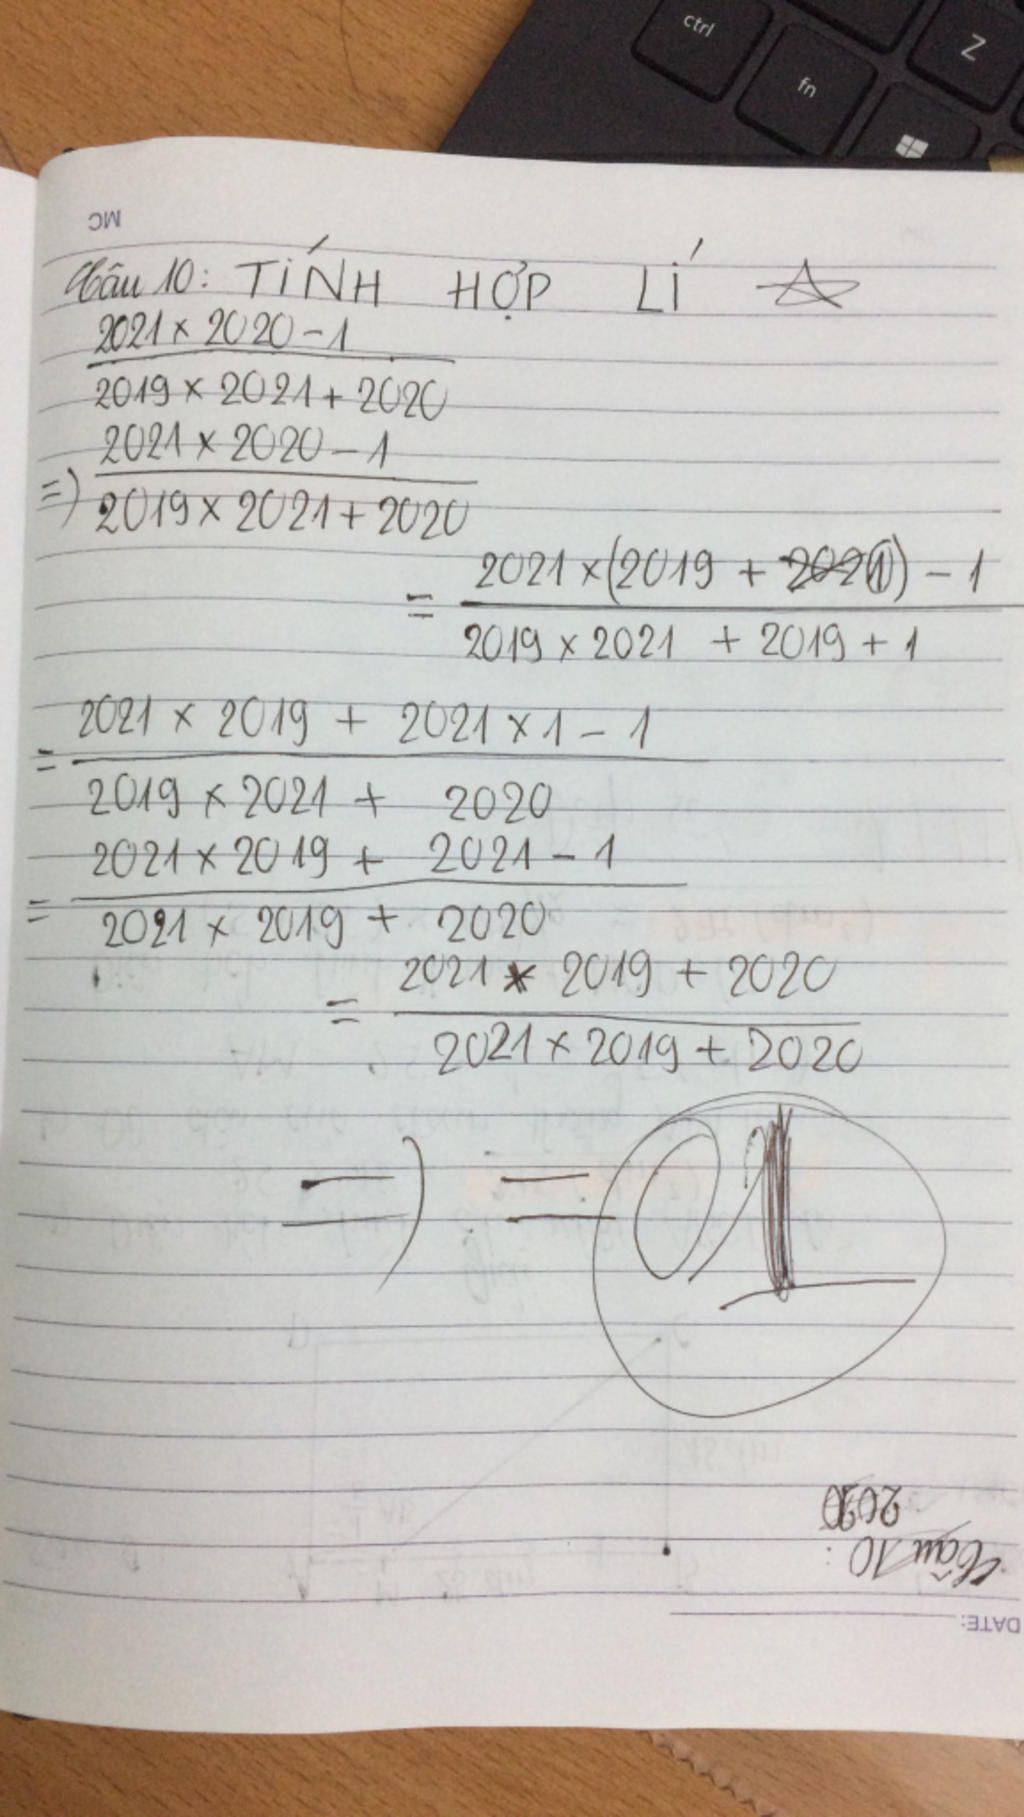 ctrl
fn
Z
MC
Câu 10: TÍNH HỢP LÍ
2021 × 2020 - 1
2019 × 2021 + 2020
2021 × 2020 - 1
=)
2019 × 2021 + 2020
2021 × (2019 + 1) - 1
=
2019 × 2021 + 2019 + 1
2021 × 2019 + 2021 × 1 - 1
=
2019 × 2021 + 2020
2021 × 2019 + 2021 - 1
=
2021 × 2019 + 2020
2021 × 2019 + 2020
=
2021 × 2019 + 2020
=) = 01
Câu 10:
DATE: